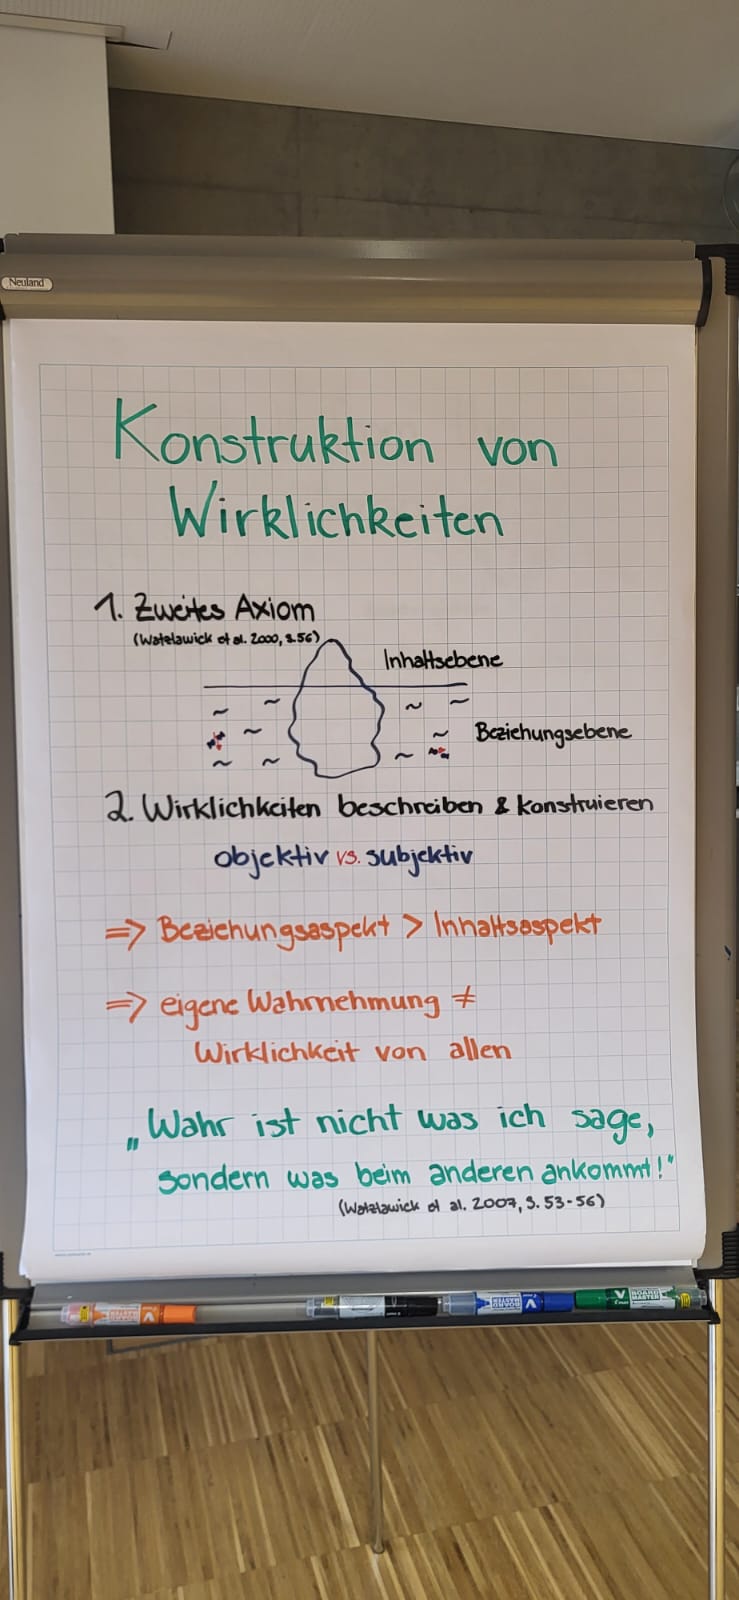 Neuland
Konstruktion von
Wirklichkeiten
1. Zweites Axiom
(Watzlawick et al. 2000, S.56)
Inhaltsebene
Beziehungsebene
2. Wirklichkeiten beschreiben & konstruieren
objektiv vs. subjektiv
=> Beziehungsaspekt > Inhaltsaspekt
=> eigene Wahrnehmung ≠
Wirklichkeit von allen
„Wahr ist nicht was ich sage,
sondern was beim anderen ankommt!"
(Watzlawick et al. 2007, S. 53-56)
V BOARD MASTER